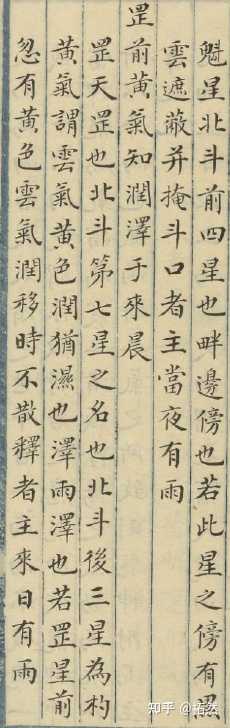 魁星北斗前四星也畔邊傍也若此星之傍有黑
雲遮蔽并掩斗口者主當夜有雨
罡前黃氣知潤澤于來晨
罡天罡也北斗第七星之名也北斗後三星為杓
黃氣謂雲氣黃色潤猶濕也澤雨澤也若罡星前
忽有黃色雲氣潤移時不散釋者主來日有雨
知乎 @拓然